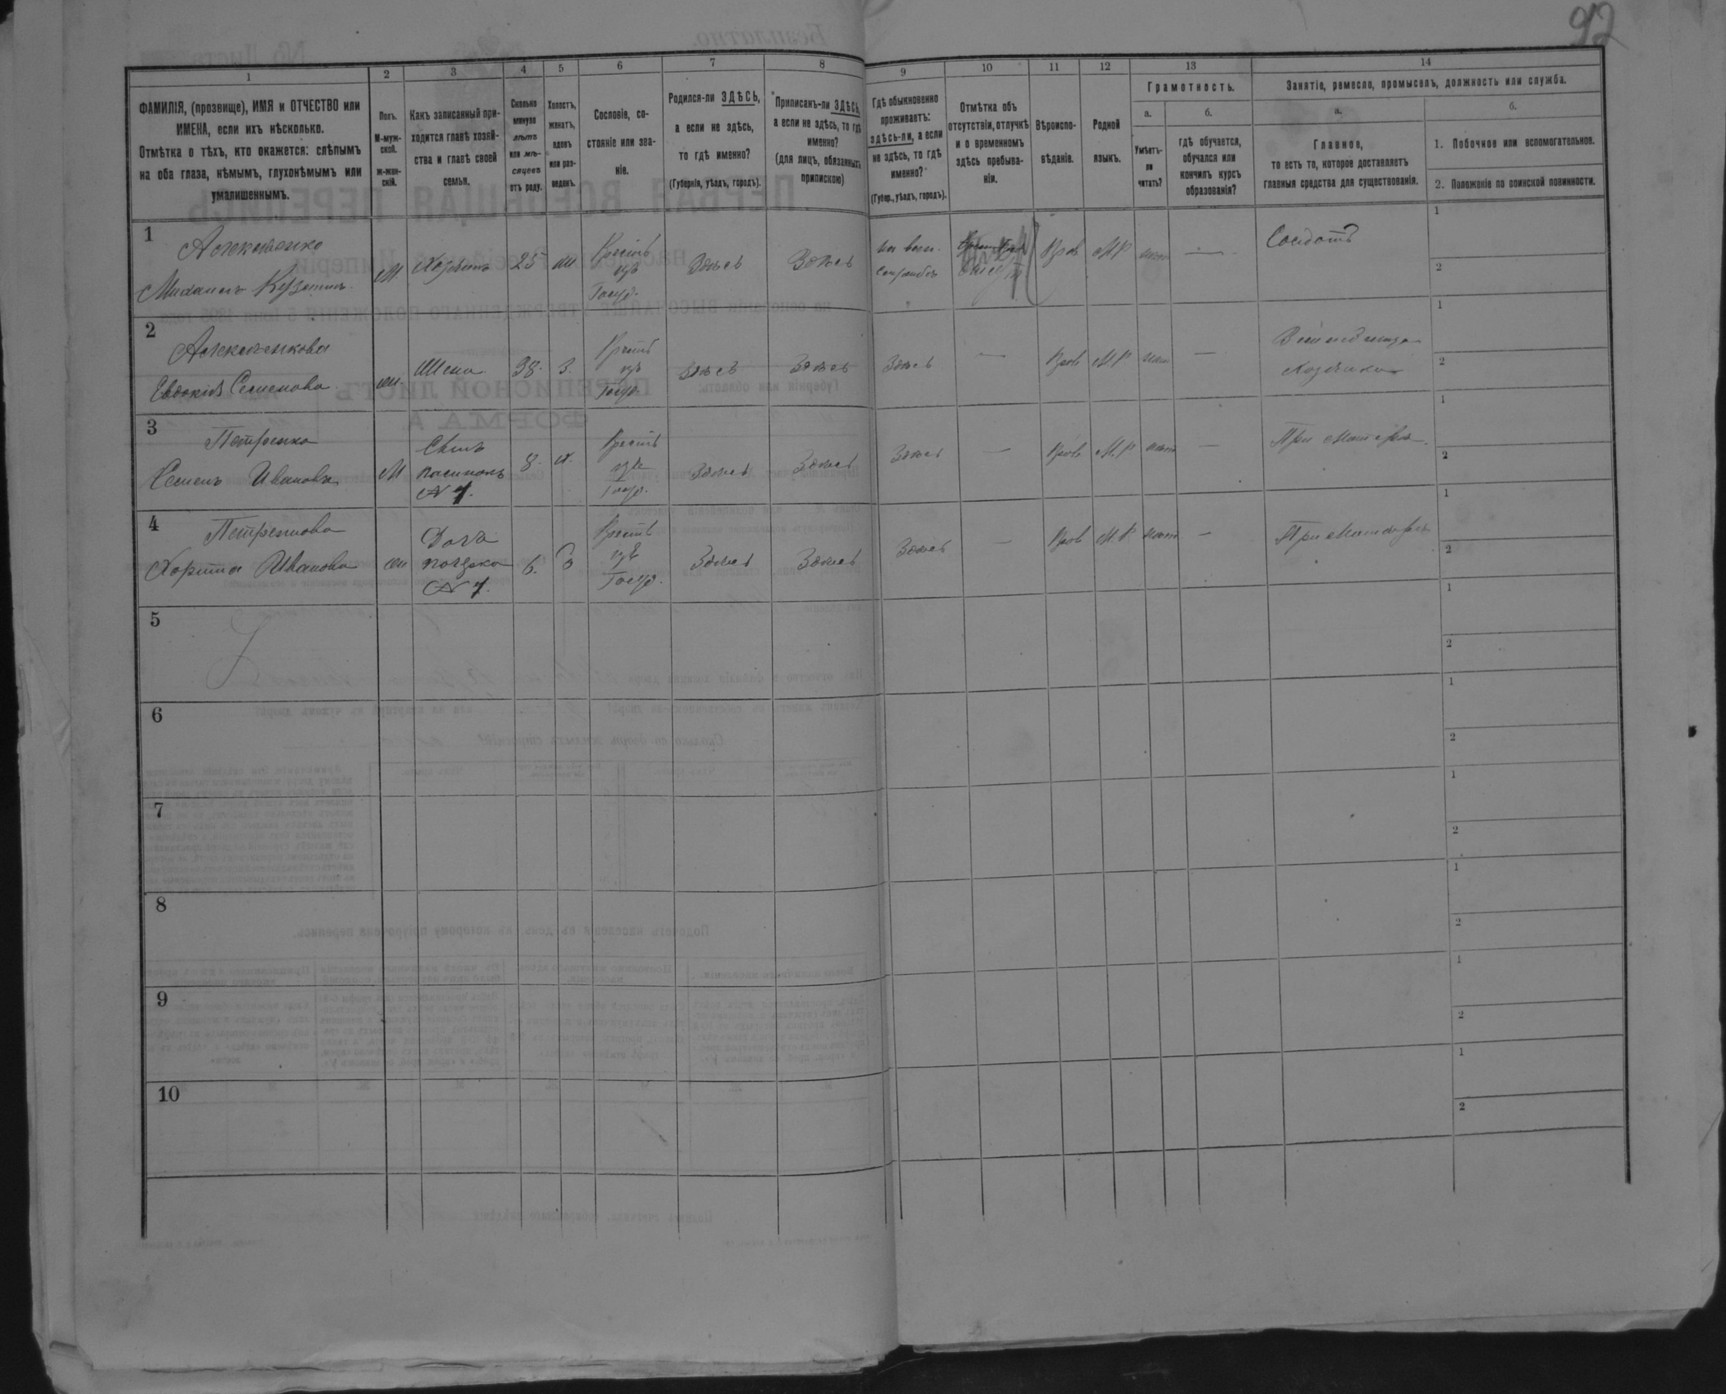 92
1
2
3
4
5
6
7
8
9
10
11
12
13
14
ФАМИЛІЯ, (прозвище), ИМЯ и ОТЧЕСТВО или
ИМЕНА, если ихъ нѣсколько.
Отмѣтка о тѣхъ, кто окажется: слѣпымъ
на оба глаза, нѣмымъ, глухонѣмымъ или
умалишеннымъ.
Полъ.
М-муж-
ской.
ж-жен-
скій.
Какъ записанный при-
ходится главѣ хозяй-
ства и главѣ своей
семьи.
Сколько
минуло
лѣтъ
или мѣ-
сяцевъ
отъ роду.
Холостъ,
женатъ,
вдовъ
или раз-
веденъ.
Сословіе, со-
стояніе или зва-
ніе.
Родился-ли ЗДѢСЬ,
а если не здѣсь,
то гдѣ именно?
(Губернія, уѣздъ, городъ).
Приписанъ-ли ЗДѢСЬ,
а если не здѣсь, то гдѣ
именно?
(для лицъ, обязанныхъ
припискою)
Гдѣ обыкновенно
проживаетъ:
здѣсь-ли, а если
не здѣсь, то гдѣ
именно?
(Губер., уѣздъ, городъ).
Отмѣтка объ
отсутствіи, отлучкѣ
и о временномъ
здѣсь пребыва-
ніи.
Вѣроиспо-
вѣданіе.
Родной
языкъ.
Грамотность.
а.
Умѣетъ-
ли
читать?
б.
гдѣ обучается,
обучался или
кончилъ курсъ
образованія?
Занятіе, ремесло, промыселъ, должность или служба.
а.
Главное,
то есть то, которое доставляетъ
главныя средства для существованія.
б.
1. Побочное или вспомогательное.
2. Положеніе по воинской повинности.
1
М
Хозяинъ
25
ж
Крестъ
изъ
Госуд.
Здѣсь
Здѣсь
Прав
МР
нѣт
—
Солдатъ
1
2
2
Евдокія Семенова
ж
Жена
38.
з.
Крестъ
изъ
Госуд.
Здѣсь
Здѣсь
Здѣсь
—
Прав
МР
нѣт
—
Хозяйка
1
2
3
Петренко
Семенъ Ивановъ
М
Сынъ
пасинокъ
№ 1.
8.
х.
Крестъ
изъ
Госуд.
Здѣсь
Здѣсь
Здѣсь
—
Прав
М.Р
нѣт
—
При матери
1
2
4
Петренкова
Харитина Иванова
ж
Дочь
№ 1.
6.
Крестъ
изъ
Госуд.
Здѣсь
Здѣсь
Здѣсь
—
Прав
М.Р
нѣт
—
При матери
1
2
5
1
2
6
1
2
7
1
2
8
1
2
9
1
2
10
1
2